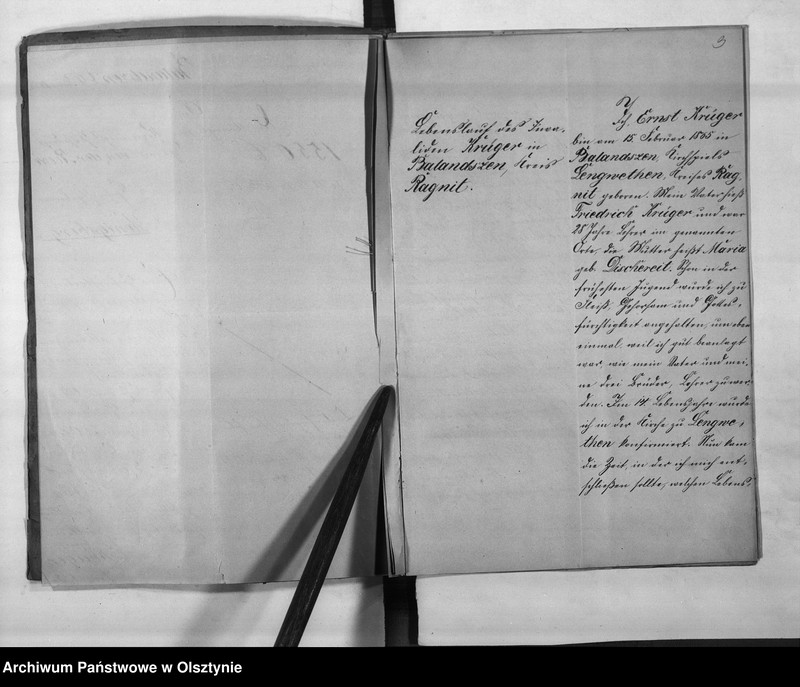 3
Lebenslauf des Inva-
liden Krüger in
Balandszen, Kreis
Ragnit.
Ich, Ernst Krüger
bin am 15. Februar 1865 in
Balandszen, Kirchspiels
Lengwethen, Kreises Rag-
nit geboren. Mein Vater hieß
Friedrich Krüger und war
28 Jahre Lehrer im genannten
Orte, die Mutter heißt Maria
geb. Dischereit. Schon in der
frühesten Jugend wurde ich zu
Fleiß, Gehorsam und Gottes-
fürchtigkeit angehalten, um
einmal, weil ich gut beanlagt
war, wie mein Vater und mei-
ne drei Brüder, Lehrer zu wer-
den. Im 14. Lebensjahre wurde
ich in der Kirche zu Lengwe-
then konfirmiert. Nun kam
die Zeit, in der ich mich ent-
schließen sollte, welchen Lebens-
Archiwum Państwowe w Olsztynie